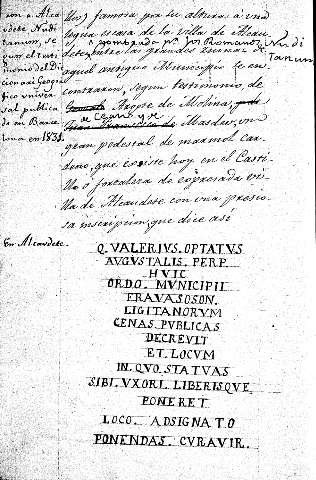 con á Alca
udete Nudi
tanum, se
gun el testi
monio del Di
cionario Geogra
fico univer
sal publica
do en Barce
lona en 1831.
llos, famosa por su altura á una
legua escasa de la villa de Alcau
dete, y nombrado por los Romanos Nudi
tanum
entre las grandes ruinas de
aquel antiguo Municipio se en
contraron, segun testimonio, de
Argote de Molina,
de Masdeu, un
gran pedestal de marmol car
deno, que existe hoy en el Casti
llo ó fortaleza de la espresada vi
lla de Alcaudete con una precio
sa inscripcion, que dice así
En Alcaudete.
Q. VALERIUS. OPTATUS
AUGUSTALIS. PERP.
HUIC
ORDO. MUNICIPII
FRAVASOSON.
LIGITANORUM
CENAS. PUBLICAS
DECREVIT
ET. LOCUM
IN. QUO. STATUAS
SIBI. UXORI. LIBERISQUE
PONERET
LOCO. ADSIGNATO
PONENDAS. CURAVIR.